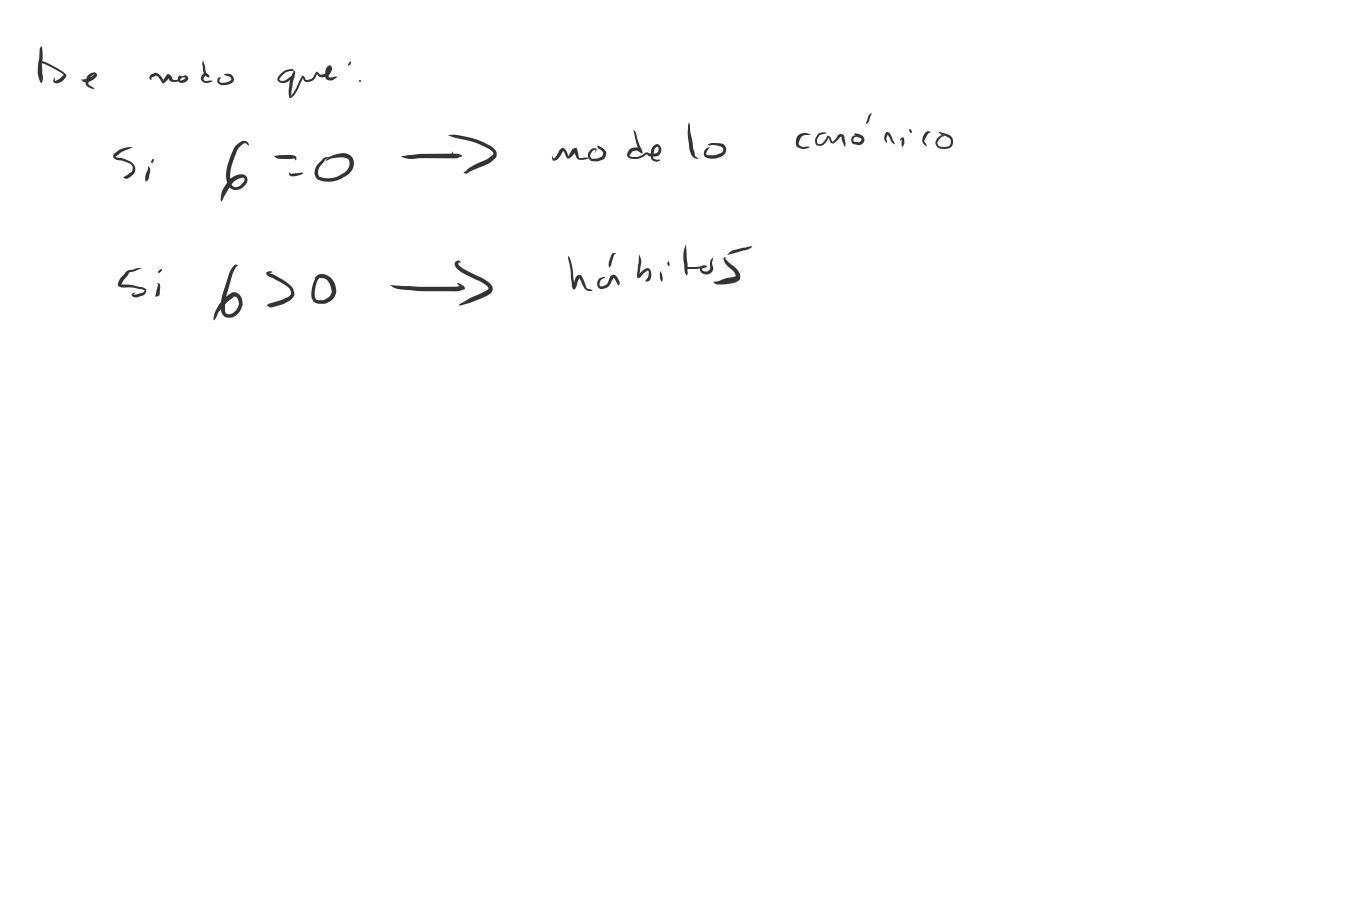 De modo que:
Si b = 0 → modelo canónico
Si b > 0 → hábitos